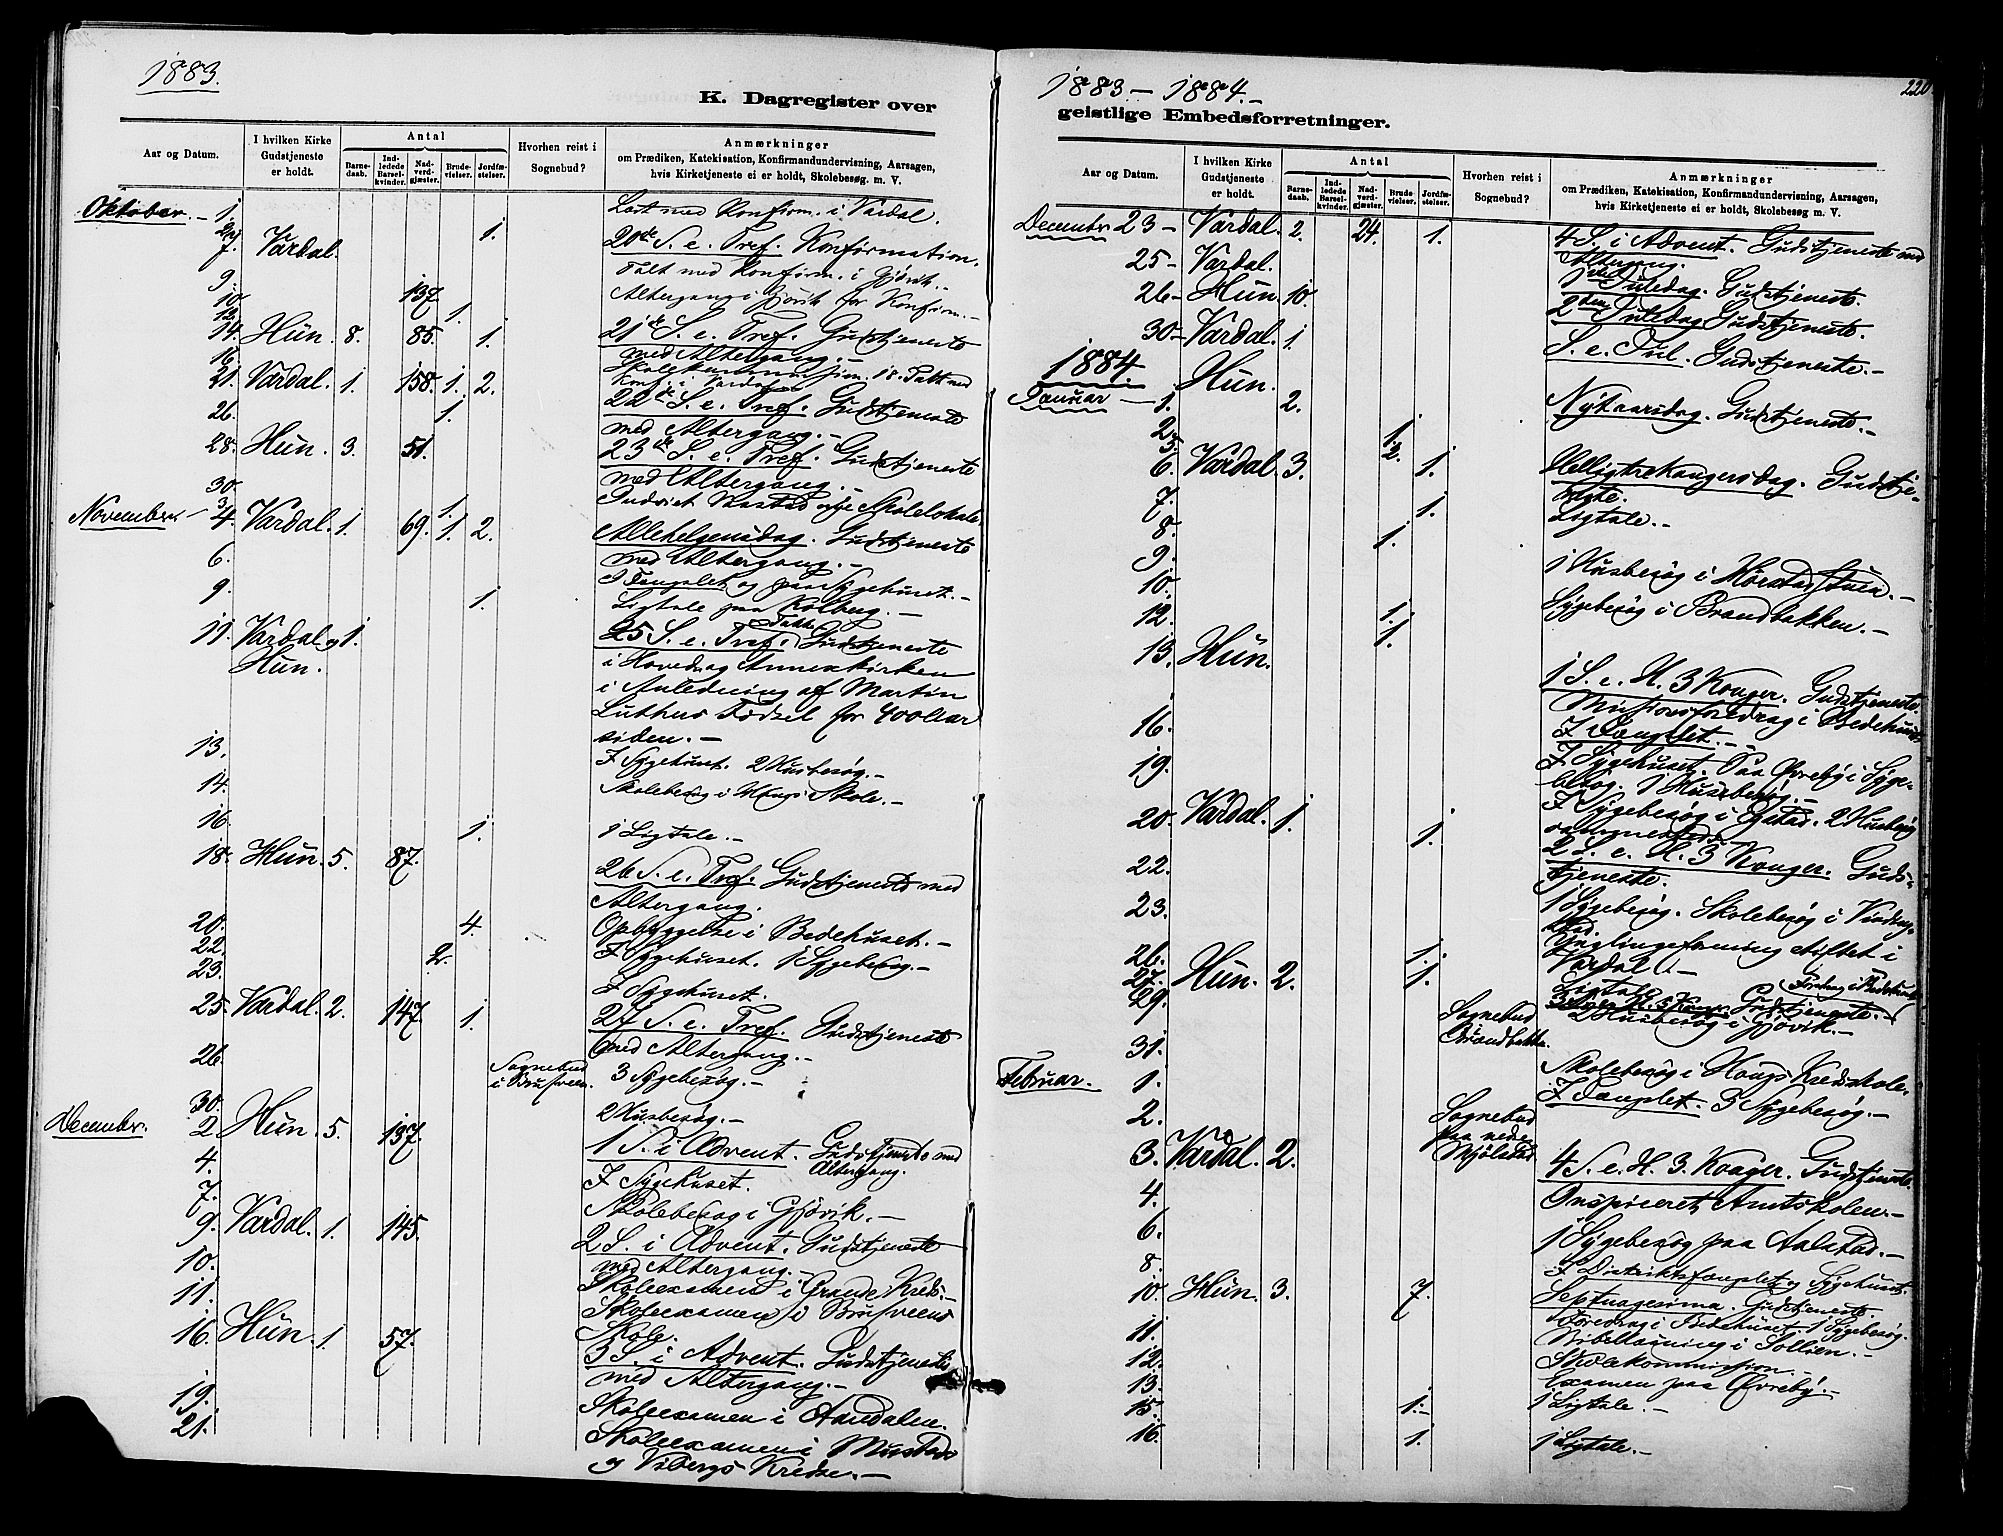 1883.
K. Dagregister over
Aar og Datum.
I hvilken Kirke Gudstjeneste er holdt.
Antal
Barnedaab.
Indledede Barselkvinder.
Nadverdgjæster.
Brudevielser.
Jordfæstelser.
Hvorhen reist i Sognebud?
Anmærkninger
om Prædiken, Katekisation, Konfirmandundervisning, Aarsagen,
hvis Kirketjeneste ei er holdt, Skolebesøg m. V.
Oktober. 1. med Konfirm. i Vardal.
7. Vardal. 1. 20de S. e. Tref. Konfirmation.
9. Talt med Konfirm. i Gjøvik.
10. 137. Altergang i Gjøvik for Konfirm.
12. 1.
14. Hun. 8. 85. 1. 21de S. e. Tref. Gudstjeneste
med Altergang.
16.
21. Vardal. 1. 158. 1. 2. 22de S. e. Tref. Gudstjeneste
26. 1. med Altergang.
28. Hun. 3. 51. 23de S. e. Tref. Gudstjeneste
med Altergang.
30. nye Skolelokale
November. 3. 1.
4. Vardal. 1. 69. 1. 2. Allehelgensdag. Gudstjeneste
med Altergang.
6. I Fængslet og paa Sygehuset.
9. 1. Ligtale paa Kolberg.
11. Vardal og 1. 25 S. e. Tref. Takke Gudstjeneste
Hun. i Hoved og Annexkirken
i Anledning af Martin
Luthers Fødsel for 400 Aar
siden.
13. I Sygehuset. 2 Husbesøg.
14. Skolebesøg i Haugs Skole.
16. 1. 1 Ligtale.
18. Hun. 5. 87. 26 S. e. Tref. Gudstjeneste med
Altergang.
20. 4. Opbyggelse i Bedehuset.
22. 2. I Sygehuset. 1 Sygebesøg.
23. I Sygehuset.
25. Vardal. 2. 147. 1. 27 S. e. Tref. Gudstjeneste
med Altergang.
26. Sognebud i 3 Sygebesøg.
30. 2 Husbesøg.
December. 2. Hun. 5. 137. 1 S. i Advent. Gudstjeneste med
Altergang.
4. I Sygehuset.
7. Skolebesøg i Gjøvik.
9. Vardal. 1. 145. 2 S. i Advent. Gudstjeneste
med Altergang.
10. Skoleexamen i Grande Kreds.
11. Skoleexamen i
Skole.
16. Hun. 1. 57. 3 S. i Advent. Gudstjeneste
med Altergang.
19. Skoleexamen i Aandalen.
21. Skoleexamen i Mustad
og Vibergs Kredse.
1883 – 1884.
220
geistlige Embedsforretninger.
Aar og Datum.
I hvilken Kirke Gudstjeneste er holdt.
Antal
Barnedaab.
Indledede Barselkvinder.
Nadverdgjæster.
Brudevielser.
Jordfæstelser.
Hvorhen reist i Sognebud?
Anmærkninger
om Prædiken, Katekisation, Konfirmandundervisning, Aarsagen,
hvis Kirketjeneste ei er holdt, Skolebesøg m. V.
December 23 – Vardal. 2. 24. 1. 4 S. i Advent. Gudstjeneste med
Altergang.
25 – Vardal. 1ste Juledag. Gudstjeneste.
26 – Hun. 10. 2den Juledag Gudstjeneste.
30 – Vardal. 1. S. e. Jul. Gudstjeneste.
1884.
Januar – 1. Hun. 2. Nytaarsdag. Gudstjeneste.
2. 1.
5. 2.
6. Vardal. 3. 1. Helligtrekongersdag. Gudstjeneste.
7. 1. Ligtale.
8. 1.
9. 1 Husbesøg i
10. Sygebesøg i Brandbakken.
12. 1.
13. Hun. 1. 1 S. e. H. 3 Konger. Gudstjeneste.
Missionsforedrag i Bedehuset
16. I Fængslet.
19. I Sygehuset. Paa Øvreby i Sygebesøg. 1 Husbesøg.
I Sygebesøg i 2 Husbesøg
20. Vardal. 1. 1. 2 S. e. H. 3 Konger. Gudstjeneste.
22. 1 Sygebesøg. Skolebesøg i
23. Ynglingeforening stiftet i
Vardal.
26. 1. Ligtale.
27. Hun. 2. 1. 3 S. e. H. 3 Konger. Gudstjeneste.
29. Sognebud Brandbakken. 2 Husbesøg i Gjøvik.
31. Skolebesøg i Haugs Kredsskole.
Februar. 1. I Fængslet. 3 Sygebesøg.
2. Sognebud paa nedre Mjølstad
3. Vardal. 2. 4 S. e. H. 3. Konger. Gudstjeneste.
4. Inspiceret Amtskolen.
6. 1 Sygebesøg paa Aalstad.
8. I Distriktsfængslet og Sygehuset.
10. Hun. 3. 7. Septuagesima. Gudstjeneste
Foredrag i Bedehuset. 1 Sygebesøg.
11. Bibellæsning i Sollien.
12. Skolekommission.
13. Examen paa Øvreby.
15. 1. 1 Ligtale.
16. 1. 1 Ligtale.